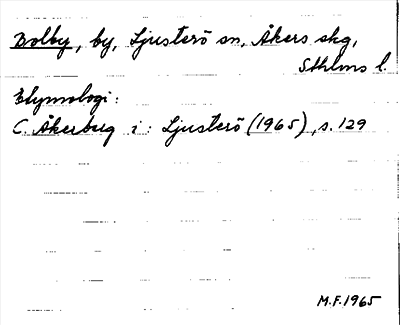 Bolby, by, Ljusterö sn, Åkers skg,
Sthlms l.
Etymologi:
C. Åkerberg i: Ljusterö (1965), s. 129
M.F. 1965